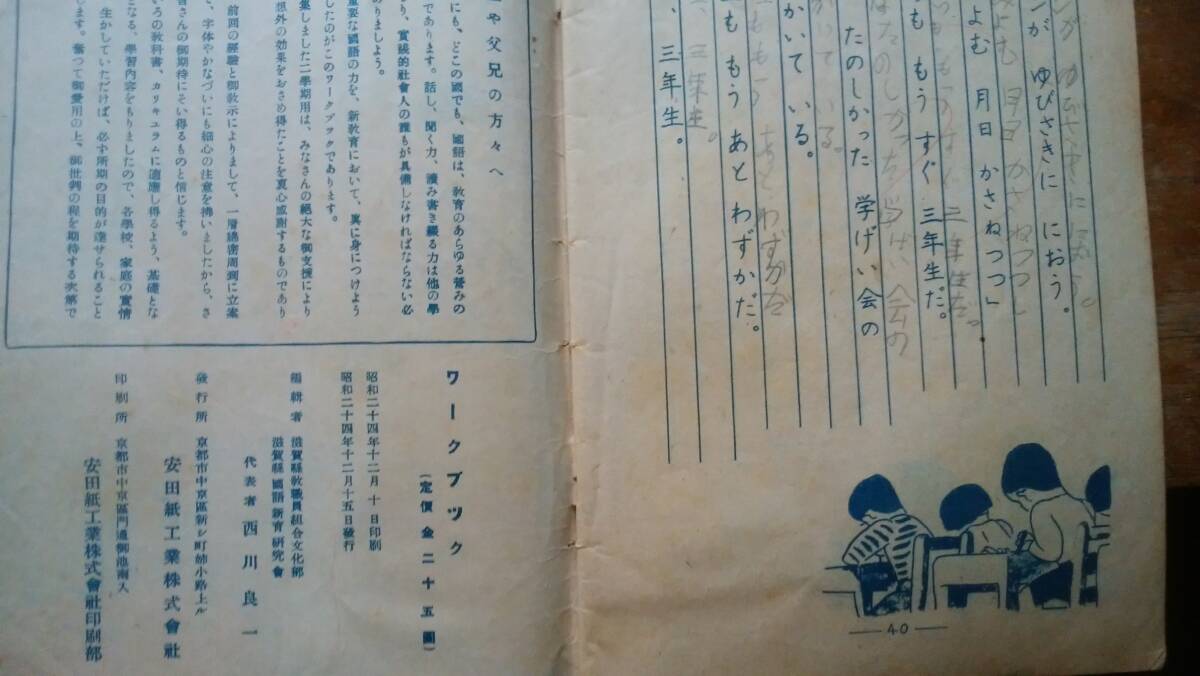 ンが ゆびさきに におう。
よむ 月日 かさねつつ」
も もう すぐ 三年生だ。
たのしかった 学げい会の
かいて いる。
も もう あと わずかだ。
三年生。
三年生。
— 40 —
や父兄の方々へ
にも、どこの國でも、國語は、敎育のあらゆる營みの
であります。話し、聞く力、讀み書き綴る力は他の學
り、實踐的社會人の誰もが具備しなければならない必
りましょう。
重要な國語の力を、新敎育において、眞に身につけよう
したのがこのワークブックであります。
集しました二學期用は、みなさんの絕大な御支援により
想外の効果をおさめ得たことを衷心感謝するものであり
前回の經驗と御敎示によりまして、一層綿密周到に立案
、字体やかなづいにも細心の注意を拂いましたから、さ
皆さんの御期待にそい得るものと信じます。
ろの敎科書、カリキュラムに適應し得るよう、基礎とな
なる、學習內容をもりましたので、各學校、家庭の實情
生かしていただけば、必ず所期の目的が達せられること
ます。奮つて御愛用の上、御批判の程を期待する次第で
ワークブック
(定價 金二十五圓)
昭和二十四年十二月 十 日印刷
昭和二十四年十二月十五日發行
編輯者 滋賀縣敎職員組合文化部
滋賀縣國語新育硏究會
代表者 西川良一
發行所 京都市中京區新シ町姉小路上ル
安田紙工業株式會社
印刷所 京都市中京區門通御池南入
安田紙工業株式會社印刷部